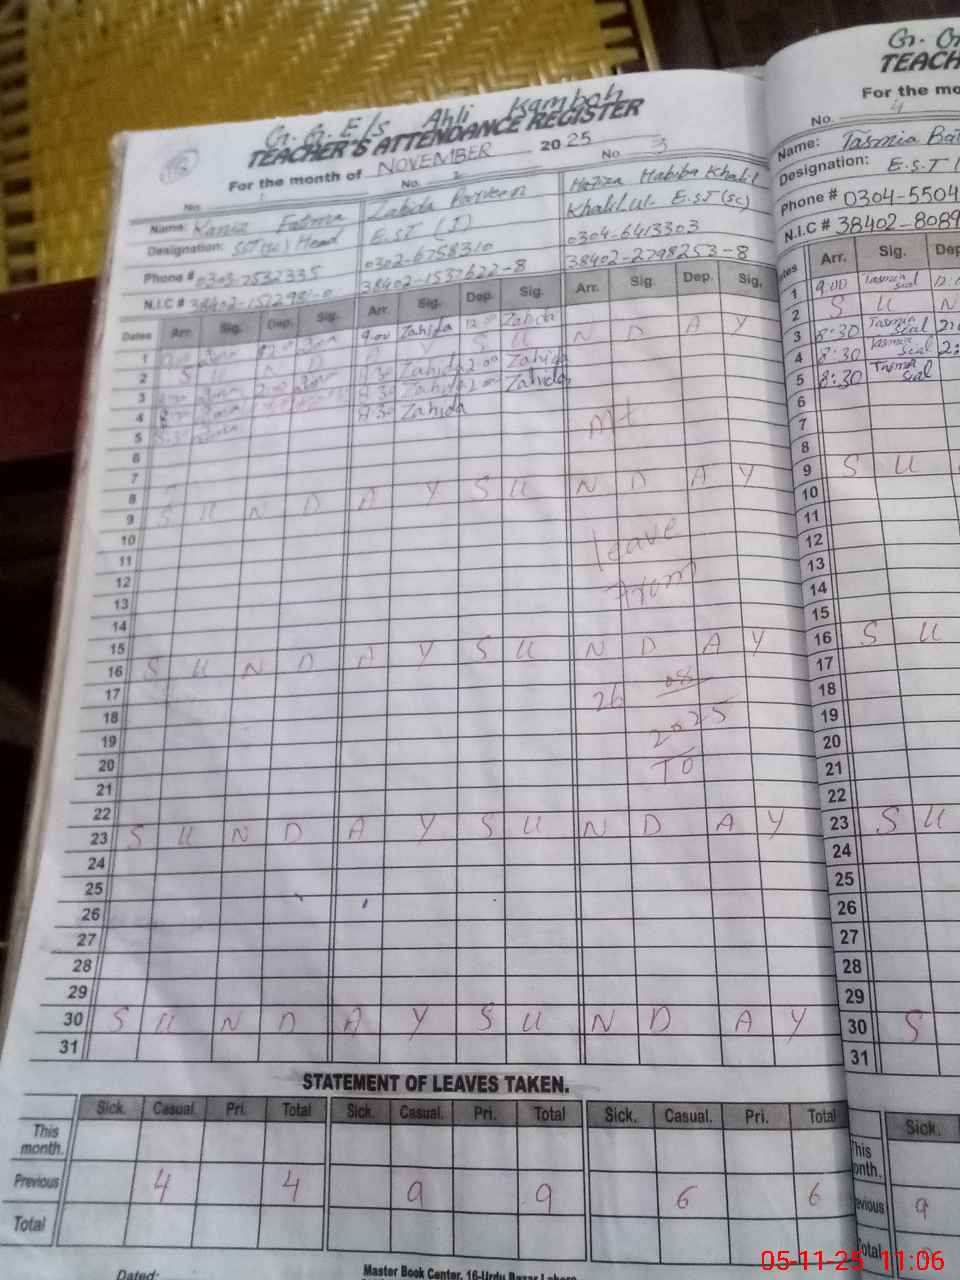 G. G. E/s Ahli Kamboh
TEACHER'S ATTENDANCE REGISTER
For the month of NOVEMBER 2025
No. 1 No. 2 No. 3
Name: Kaniz Fatma Zahida Parveen Hafiza Habiba Khalil
Designation: SST (sc) Head E.ST (I) Khalil ul. E.ST (SC)
Phone # 0303-7532335 0302-6758310 0304-6413303
N.I.C # 38402-1537622-8 38402-2798253-8
Dates Arr. Sig. Dep. Sig. Arr. Sig. Dep. Sig. Arr. Sig. Dep. Sig.
1 9.00 12.00 9.00 Zahida 12.00 Zahida
2 S U N D A Y S U N D A Y
3 8:30 2:00 8.30 Zahida 2.00 Zahida
4 8:30 8.30 Zahida 2.00 Zahida
5 8:30 8.30 Zahida
6
7
8
9 S U N D A Y S U N D A Y
10
11 leave
12
13 from
14
15
16 S U N D A Y S U N D A Y
17
18 26 08
19
20 2025
21 TO
22
23 S U N D A Y S U N D A Y
24
25
26
27
28
29
30 S U N D A Y S U N D A Y
31
STATEMENT OF LEAVES TAKEN.
Sick. Casual. Pri. Total Sick. Casual. Pri. Total Sick. Casual. Pri. Total
This month.
Previous 4 4 9 9 6 6
Total
Dated:
Master Book Center, 16-Urdu Bazar Lahore
G. G
TEACH
For the mo
No. 4
Name: Tasmia Bat
Designation: E.S.T (
Phone # 0304-5504
N.I.C # 38402-8089
Arr. Sig. Dep
1 9.00 Tasmia Seal
2 S U N
3 8:30 Tasmia Seal
4 8:30 Tasmia Seal 2:
5 8:30 Tasmia Seal
6
7
8
9 S U
10
11
12
13
14
15
16 S U
17
18
19
20
21
22
23 S U
24
25
26
27
28
29
30 S
31
Sick.
This
onth.
evious 9
Total
05-11-25 11:06